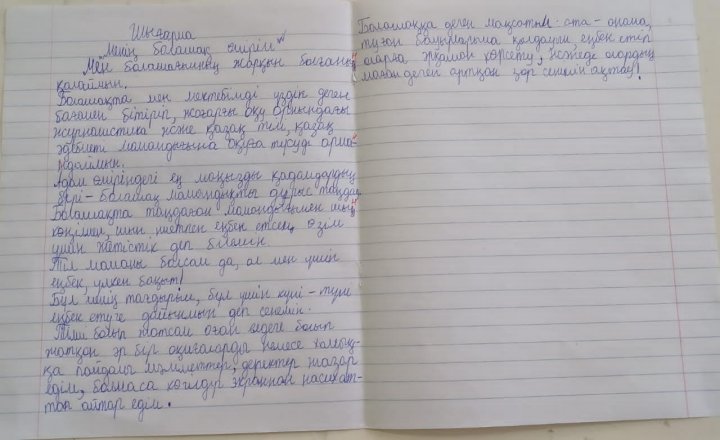 Шығарма
"Менің болашақ өмірім"
Мен болашағымның жарқын болғанын
қалаймын.
Болашақта мен мектебімді үздік деген
бағамен бітіріп, жоғарғы оқу орнындағы
журналистика және қазақ тілі, қазақ
әдебиеті мамандығына оқуға түсуді арма-
ндаймын.
Адам өміріндегі ең маңызды қадамдардың
бірі - болашақ мамандықты дұрыс таңдау.
Болашақта таңдаған мамандығыммен шын
көңілмен, шын ниетпен еңбек етсем, өзім
үшін жетістік деп білемін.
Тіл маманы болсам да, ол мен үшін
еңбек, үлкен бақыт!
Бұл менің тағдырым, бұл үшін күні - түні
еңбек етуге дайынмын деп сенемін.
болып жатсам оған болып
жатқан әр бір оқиғаларды немесе халық-
қа пайдалы мәліметтер, деректер жазар
едім, болмаса көгілдір экраннан насихат-
тап айтар едім.
Болашаққа деген мақсатым - ата - анама,
туған бауырларыма қолдаушы, еңбек етіп
оларға жақсы көрсету, және олардың
маған деген артқан зор сенімін ақтау!